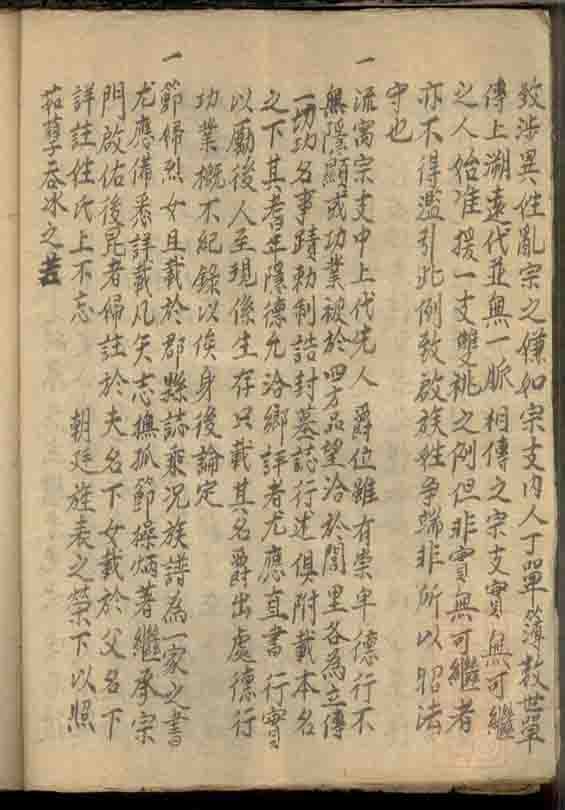 致涉異姓亂宗之僕如宗支內人丁單薄數世單
傳上溯遠代並無一脈相傳之宗支實無可繼
之人始准援一支雙祧之例但非實無可繼者
亦不得濫引此例致啟族姓爭端非所以昭法
守也
一流寓宗支中上代先人爵位雖有崇卑德行不
無隱顯或功業被於四方品望洽於閭里各為立傳
一切功名事蹟勅制誥封墓誌行述俱附載本名
之下其耆年隱德允洽鄉評者尤應直書行實
以勵後人至現係生存只載其名爵出處德行
功業概不紀錄以俟身後論定
一節婦烈女且載於郡縣誌乘況族譜為一家之書
尤應備悉詳載凡矢志撫孤節操炳著繼承宗
門啟佑後昆者婦註於夫名下女載於父名下
詳註姓氏上不忘 朝廷旌表之榮下以照
茹孽吞冰之苦